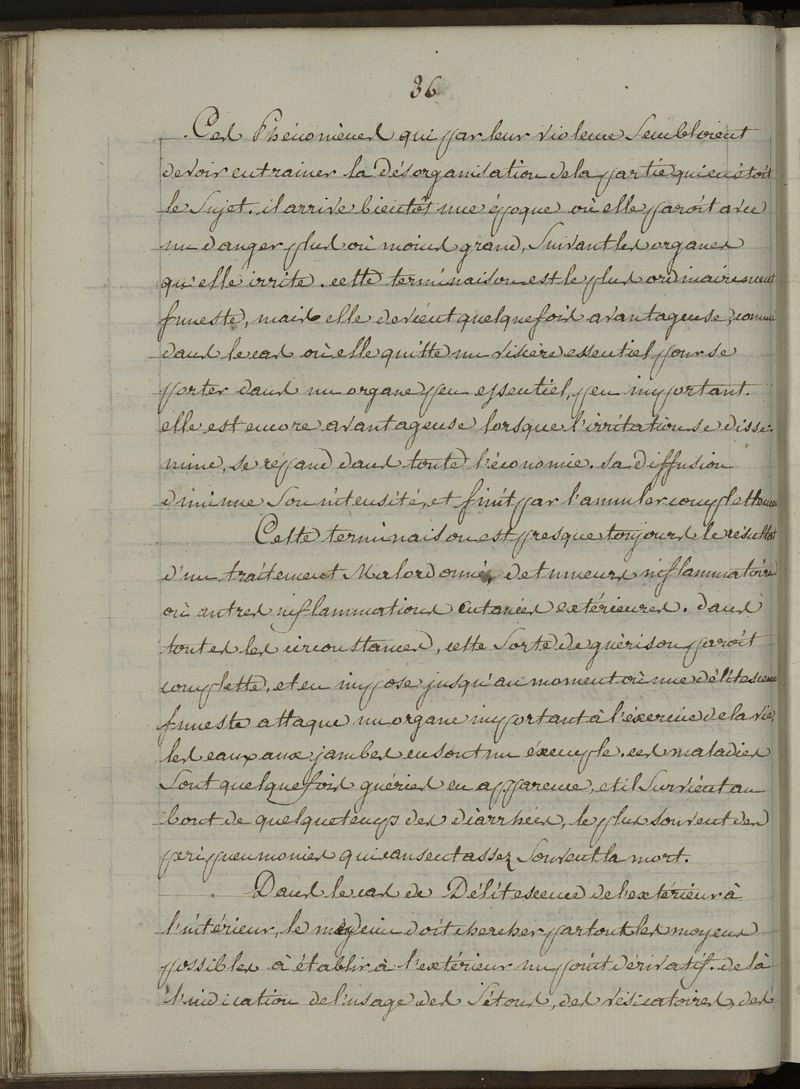 36
Ces Phénomènes qui par leur violence Sembloient
devoir entrainer la Désorganisation de la partie qui en étoit
le Sujet. il arrive bientôt une époque où elle paroît avec
un danger plus où moins grand, Suivant les organes
qu'elle irrite. cette terminaison est le plus ordinairement
funeste, mais elle devient quelquefois avantageuse, comme
dans le cas où elle quitte un viscère essentiel pour se
porter dans un organe peu essentiel, peu important.
elle est encore avantageuse lorsque l'irritation se disse-
mine, se répand dans toute l'économie. sa diffusion
diminue Son intensité, et finit par l'annuler complettement
Cette terminaison est presque toujours le résultat
d'un traitement Mal ordonné, de tumeurs inflammatoires
où autres inflammations cutanées extérieures. dans
toutes les circonstances, cette Sorte de guérison paroît
complette, et en impose jusqu'au moment où une délitescence
funeste attaque un organe important à l'éxercice de la vie,
les eaux aux jambes en sont un exemple. ces maladies
Sont quelquefois guéries en apparence, et il Survient au
bout de quelque temps des diarrhées, le plus souvent des
peripneumonies qui causent assez Souvent la mort.
Dans le cas de Délitescence de l'extérieur à
l'intérieur, le médecin doit chercher par tout les moyens
possibles à établir à l'extérieur un point derivatif. de là
l'indication de l'usage des Sétons, des vésicatoires, des